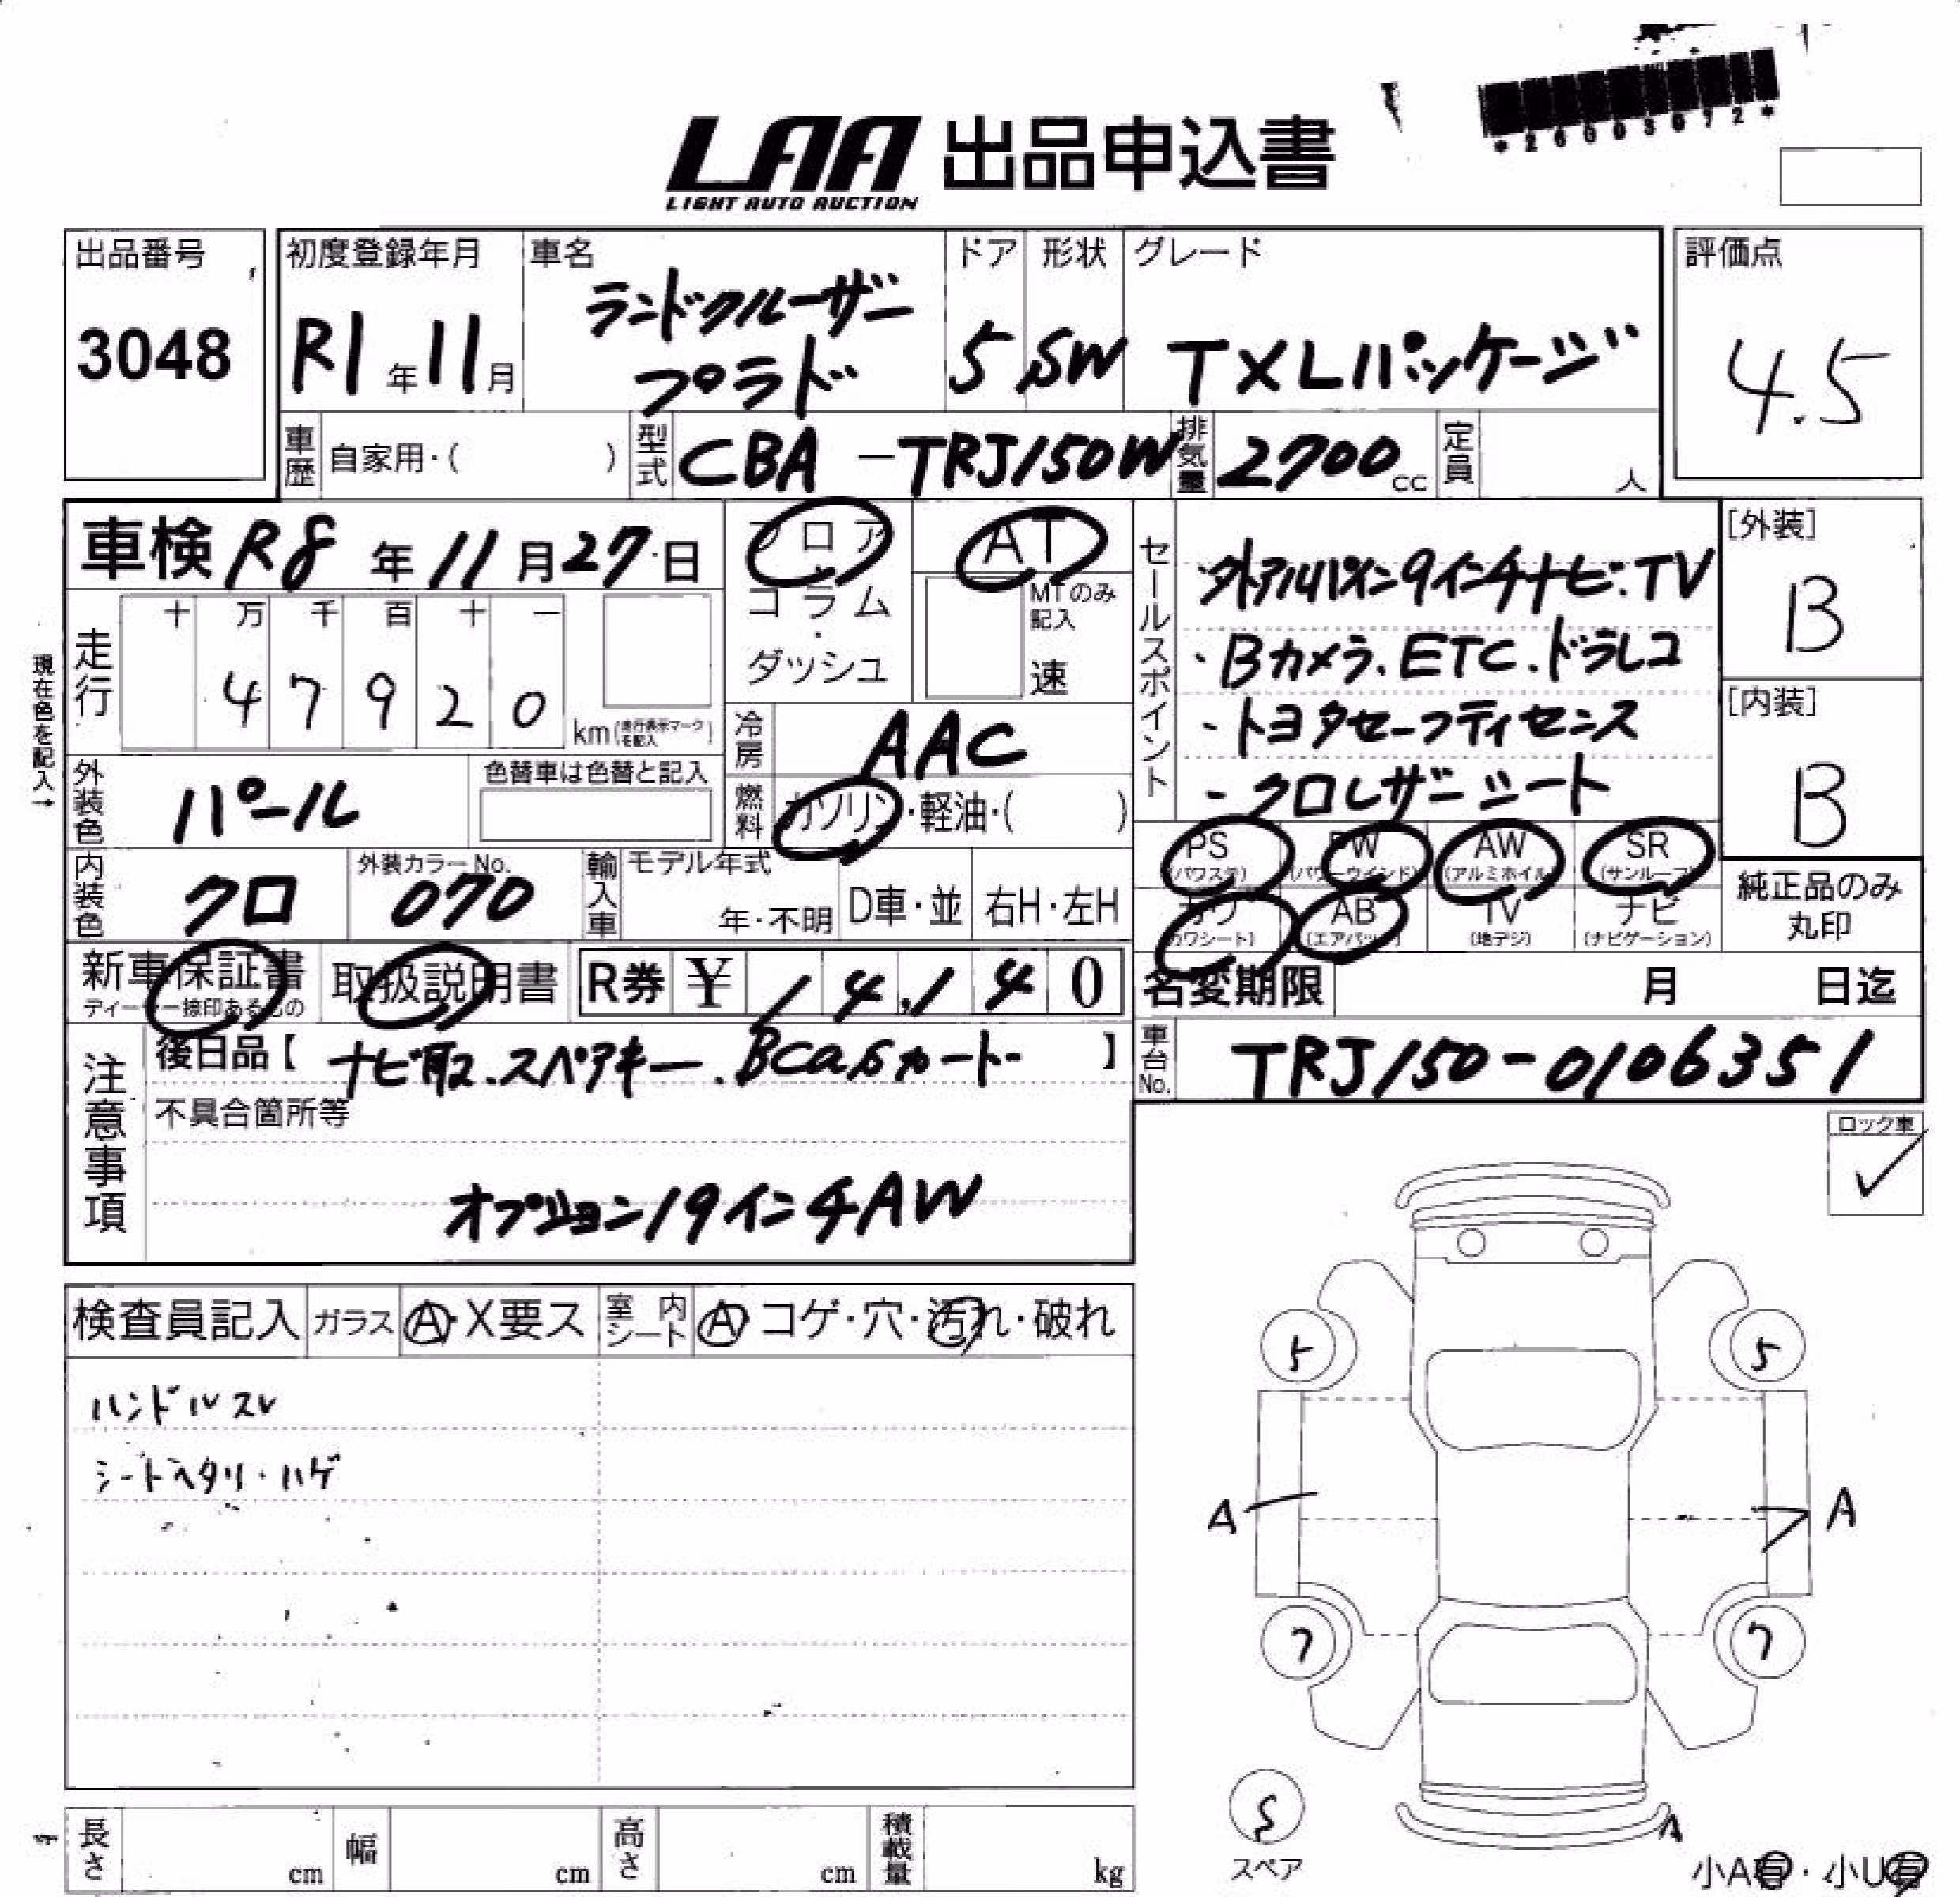 *26003072*
LAA 出品申込書
LIGHT AUTO AUCTION
出品番号
3048
初度登録年月
R1年11月
車名
ランドクルーザー
プラド
ドア
5
形状
SW
グレード
TXLパッケージ
評価点
4.5
車歴 自家用・( )
型式 CBA-TRJ150W
排気量 2700cc
定員 人
車検 R8年11月27日
フロア・コラム・ダッシュ
AT
MTのみ記入
速
現在色を記入→
走行 十万千百十一
47920 km (走行表示マークを記入)
冷房 AAC
燃料 ガソリン・軽油・( )
外装色 パール
色替車は色替と記入
内装色 クロ
外装カラーNo. 070
輸入車 モデル年式 年・不明 D車・並 右H・左H
セールスポイント
・外アルパイン9インチナビ.TV
・Bカメラ.ETC.ドラレコ
・トヨタセーフティセンス
・クロレザーシート
[外装]
B
[内装]
B
PS (パワステ) PW (パワーウインド) AW (アルミホイル) SR (サンルーフ)
カワ (カワシート) AB (エアバック) TV (地デジ) ナビ (ナビゲーション)
純正品のみ丸印
新車保証書 ディーラー捺印あるもの
取扱説明書
R券 ¥ 14,140
名変期限 月 日迄
車台No. TRJ150-0106351
注意事項
後日品【ナビ取.スペアキー.Bcasカード】
不具合箇所等
オプション19インチAW
ロック車
✓
検査員記入 ガラス A・X要ス 室内シート A コゲ・穴・汚れ・破れ
ハンドルスレ
シートヘタリ・ハゲ
5 5
A A
7 7
A
スペア
小A有・小U有
長さ cm 幅 cm 高さ cm 積載量 kg